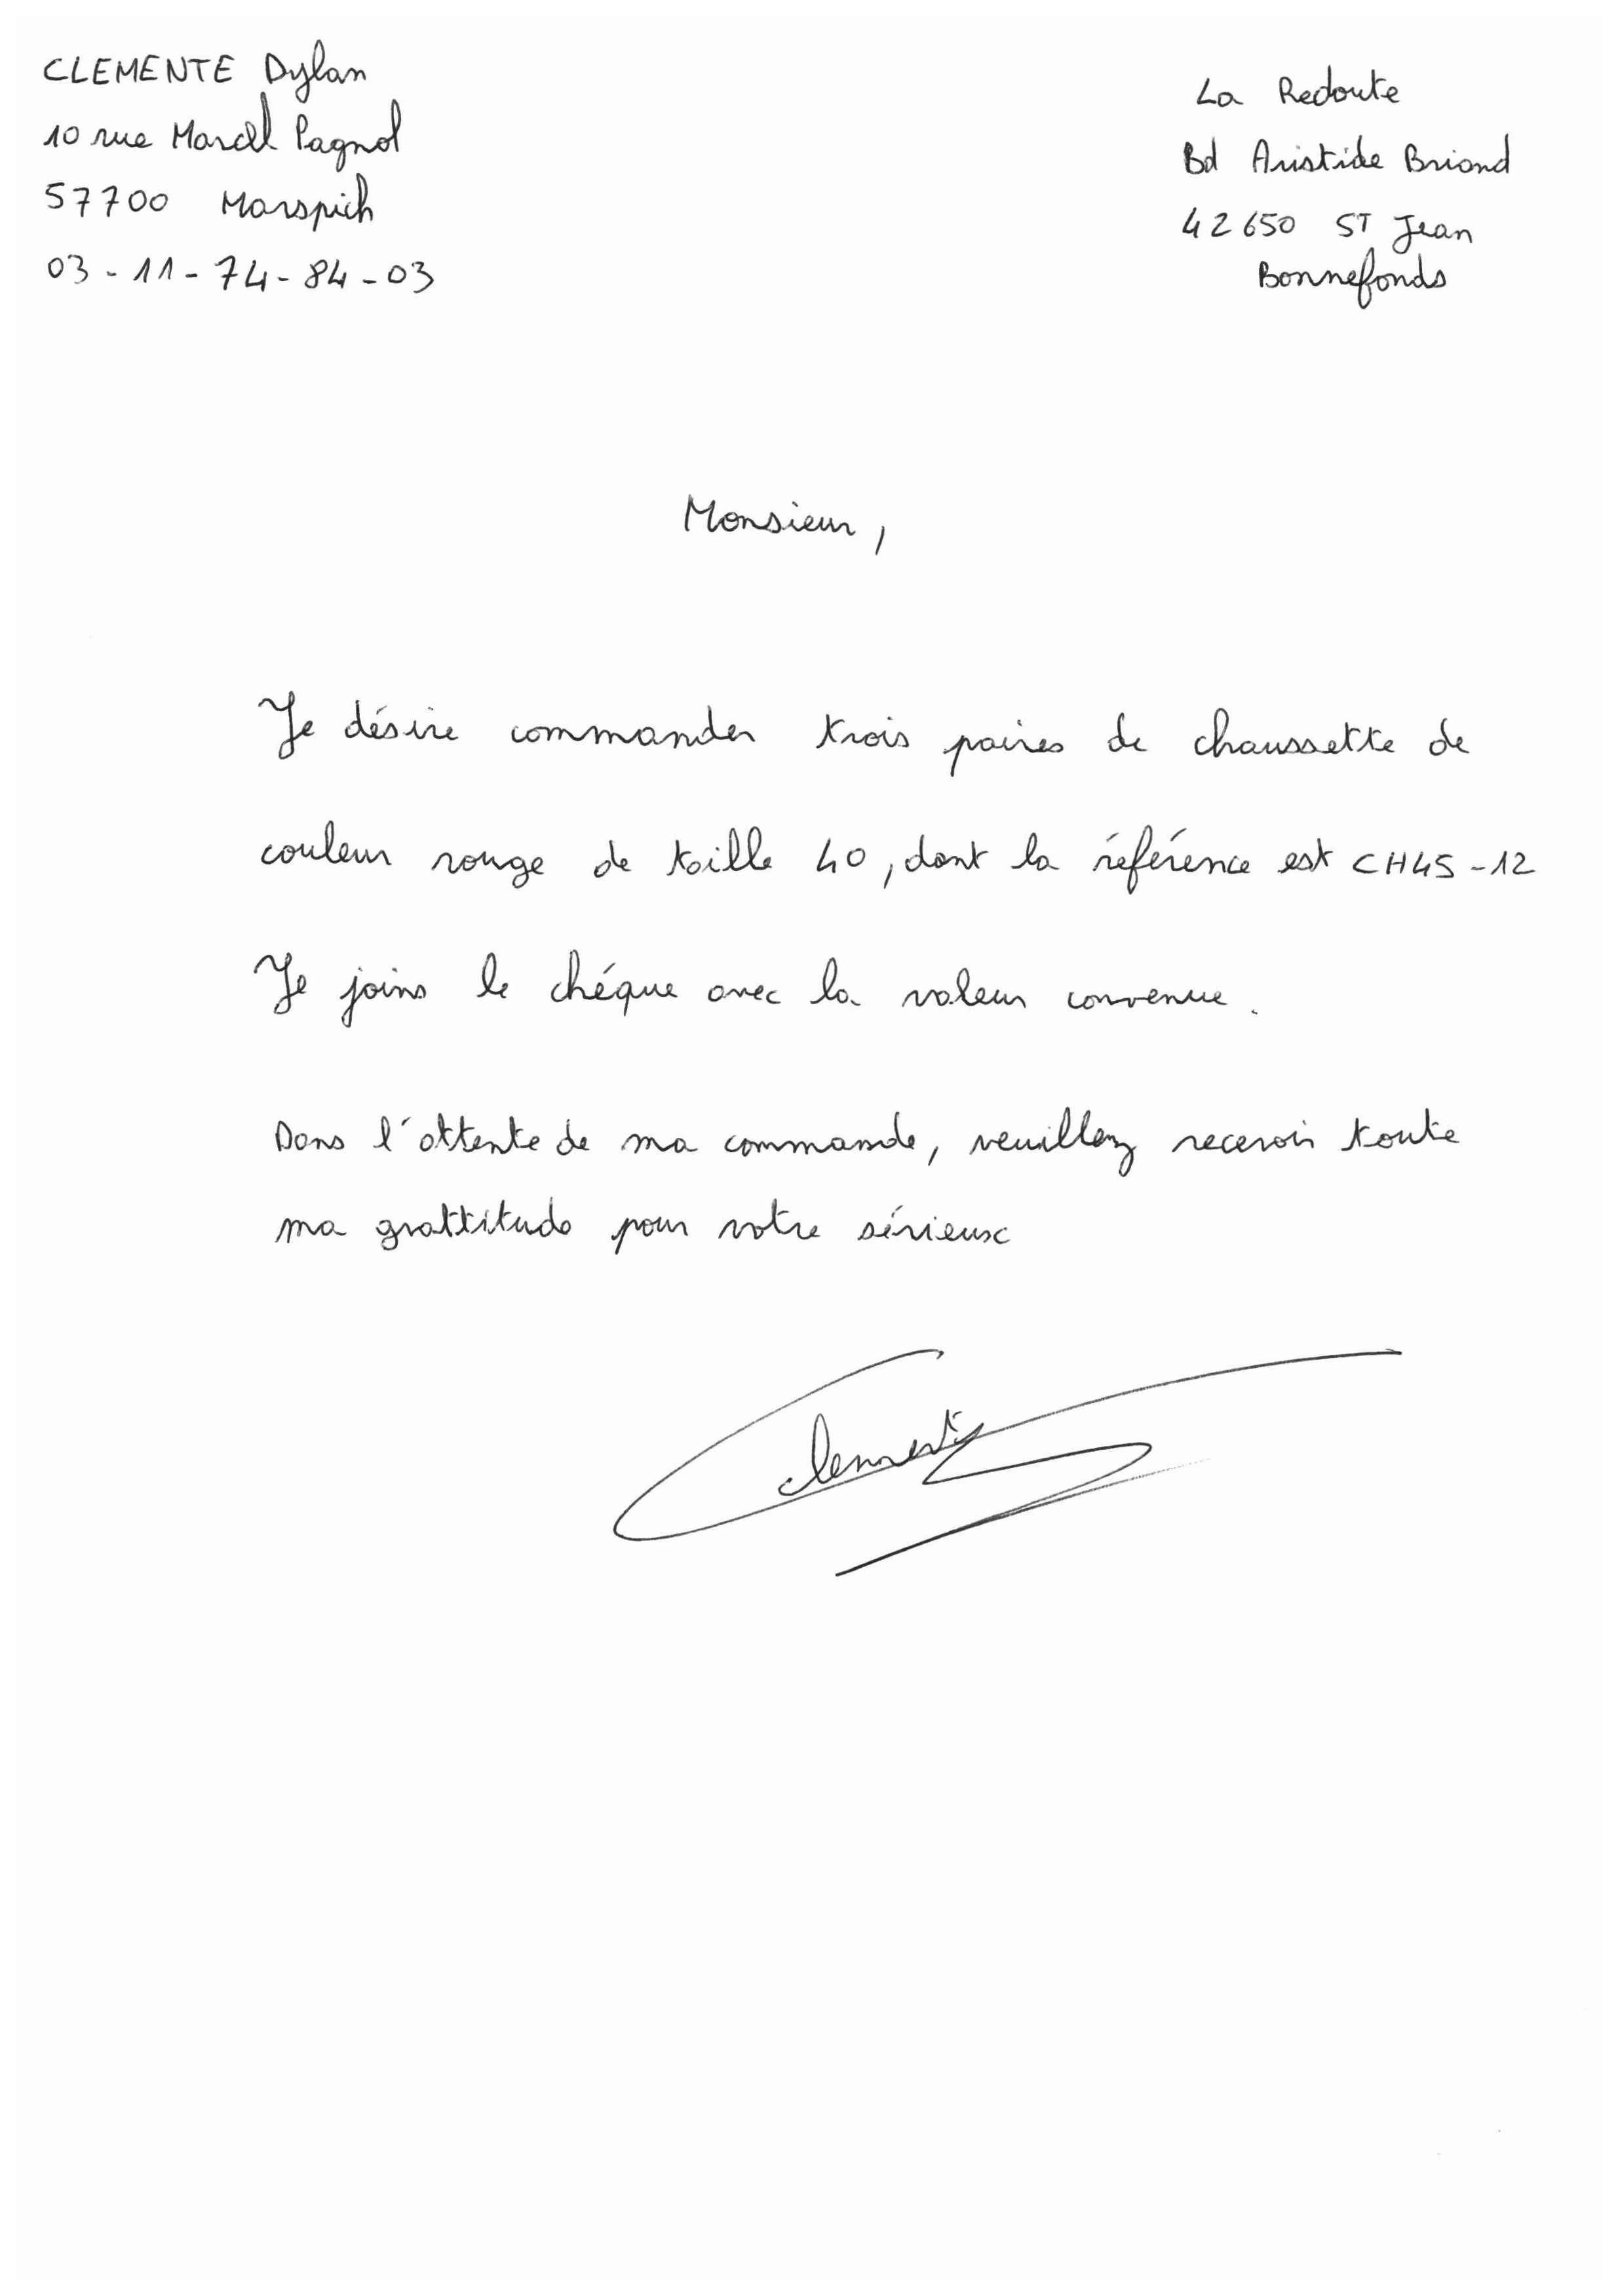 CLEMENTE Dylan
10 rue Marcel Pagnol
57700 Marspich
03-11-74-84-03
La Redoute
Bd Aristide Briand
42650 ST Jean
Bonnefonds
Monsieur,
Je désire commander trois paires de chaussette de
couleur rouge de taille 40, dont la référence est CH45-12
Je joins le chéque avec la valeur convenue.
Dans l'attente de ma commande, veuillez recevoir toute
ma grattitude pour votre sérieux
Clemente